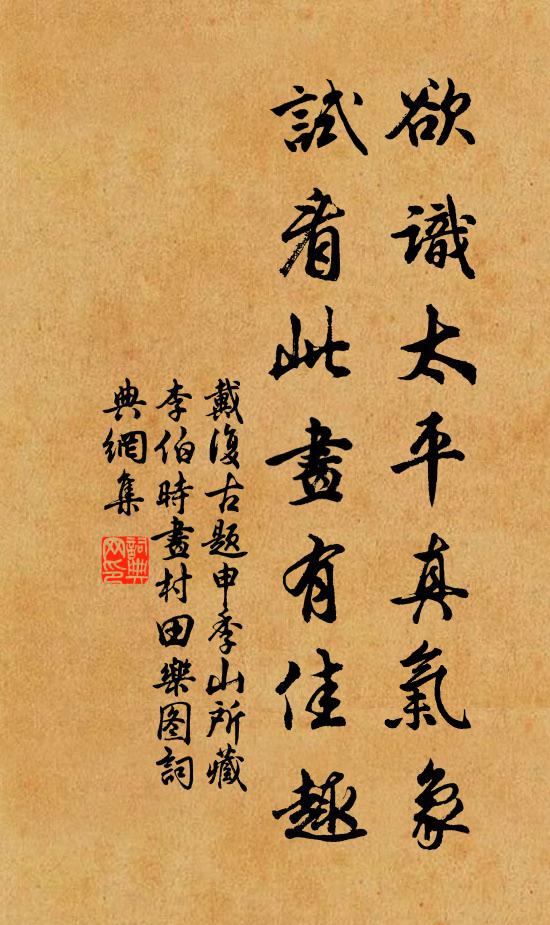 欲識太平真氣象
試看此畫有佳趣
戴復古題申季山所藏
李伯時畫村田樂图詞
典網集
詞典
网印